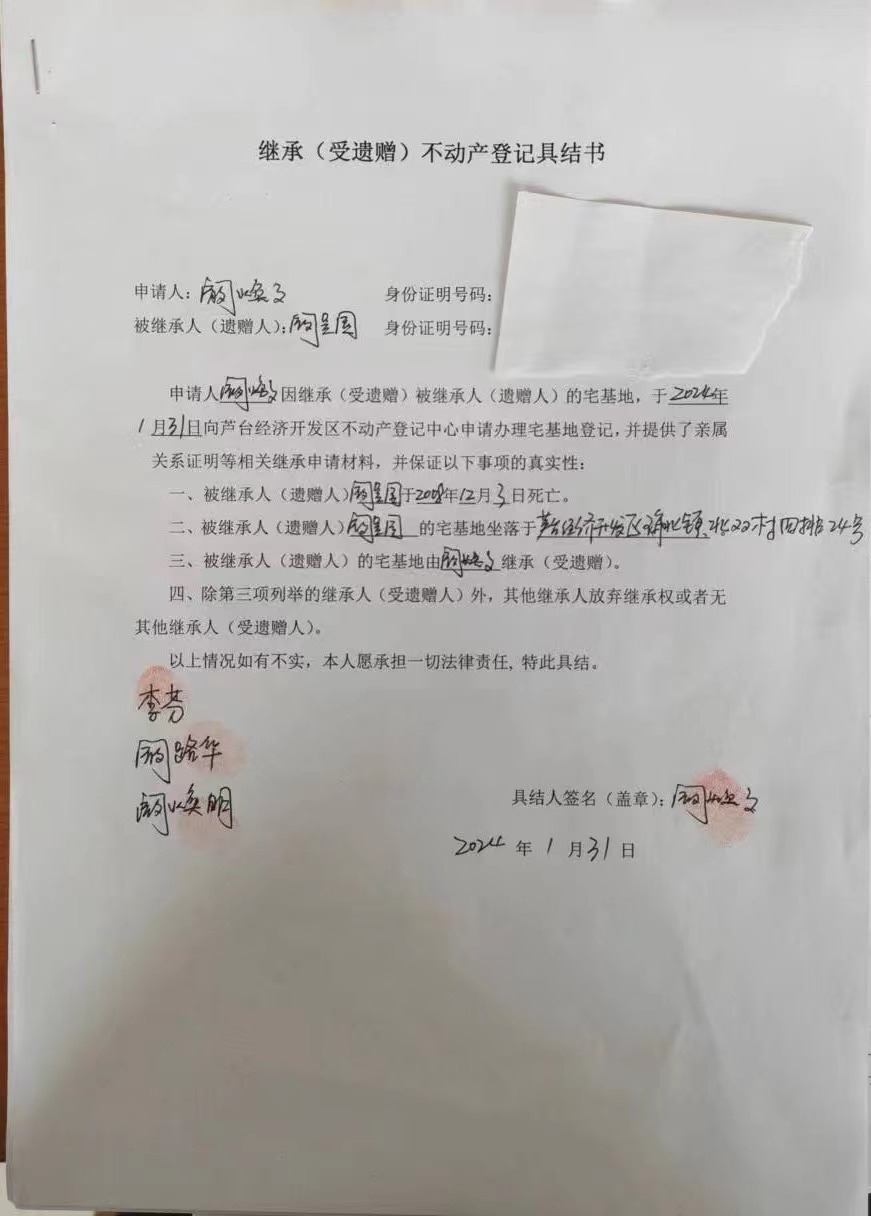 继承（受遗赠）不动产登记具结书
申请人： 身份证明号码：
被继承人（遗赠人）： 身份证明号码：
申请人 因继承（受遗赠）被继承人（遗赠人）的宅基地，于2024年
1月31日向芦台经济开发区不动产登记中心申请办理宅基地登记，并提供了亲属
关系证明等相关继承申请材料，并保证以下事项的真实性：
一、被继承人（遗赠人） 于 年12月3日死亡。
二、被继承人（遗赠人） 的宅基地坐落于 经济开发区 镇 村四排24号
三、被继承人（遗赠人）的宅基地由 继承（受遗赠）。
四、除第三项列举的继承人（受遗赠人）外，其他继承人放弃继承权或者无
其他继承人（受遗赠人）。
以上情况如有不实，本人愿承担一切法律责任，特此具结。
李芬
路华
焕明
具结人签名（盖章）：
2024年1月31日